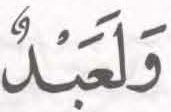 وَلَعَبْدٌ